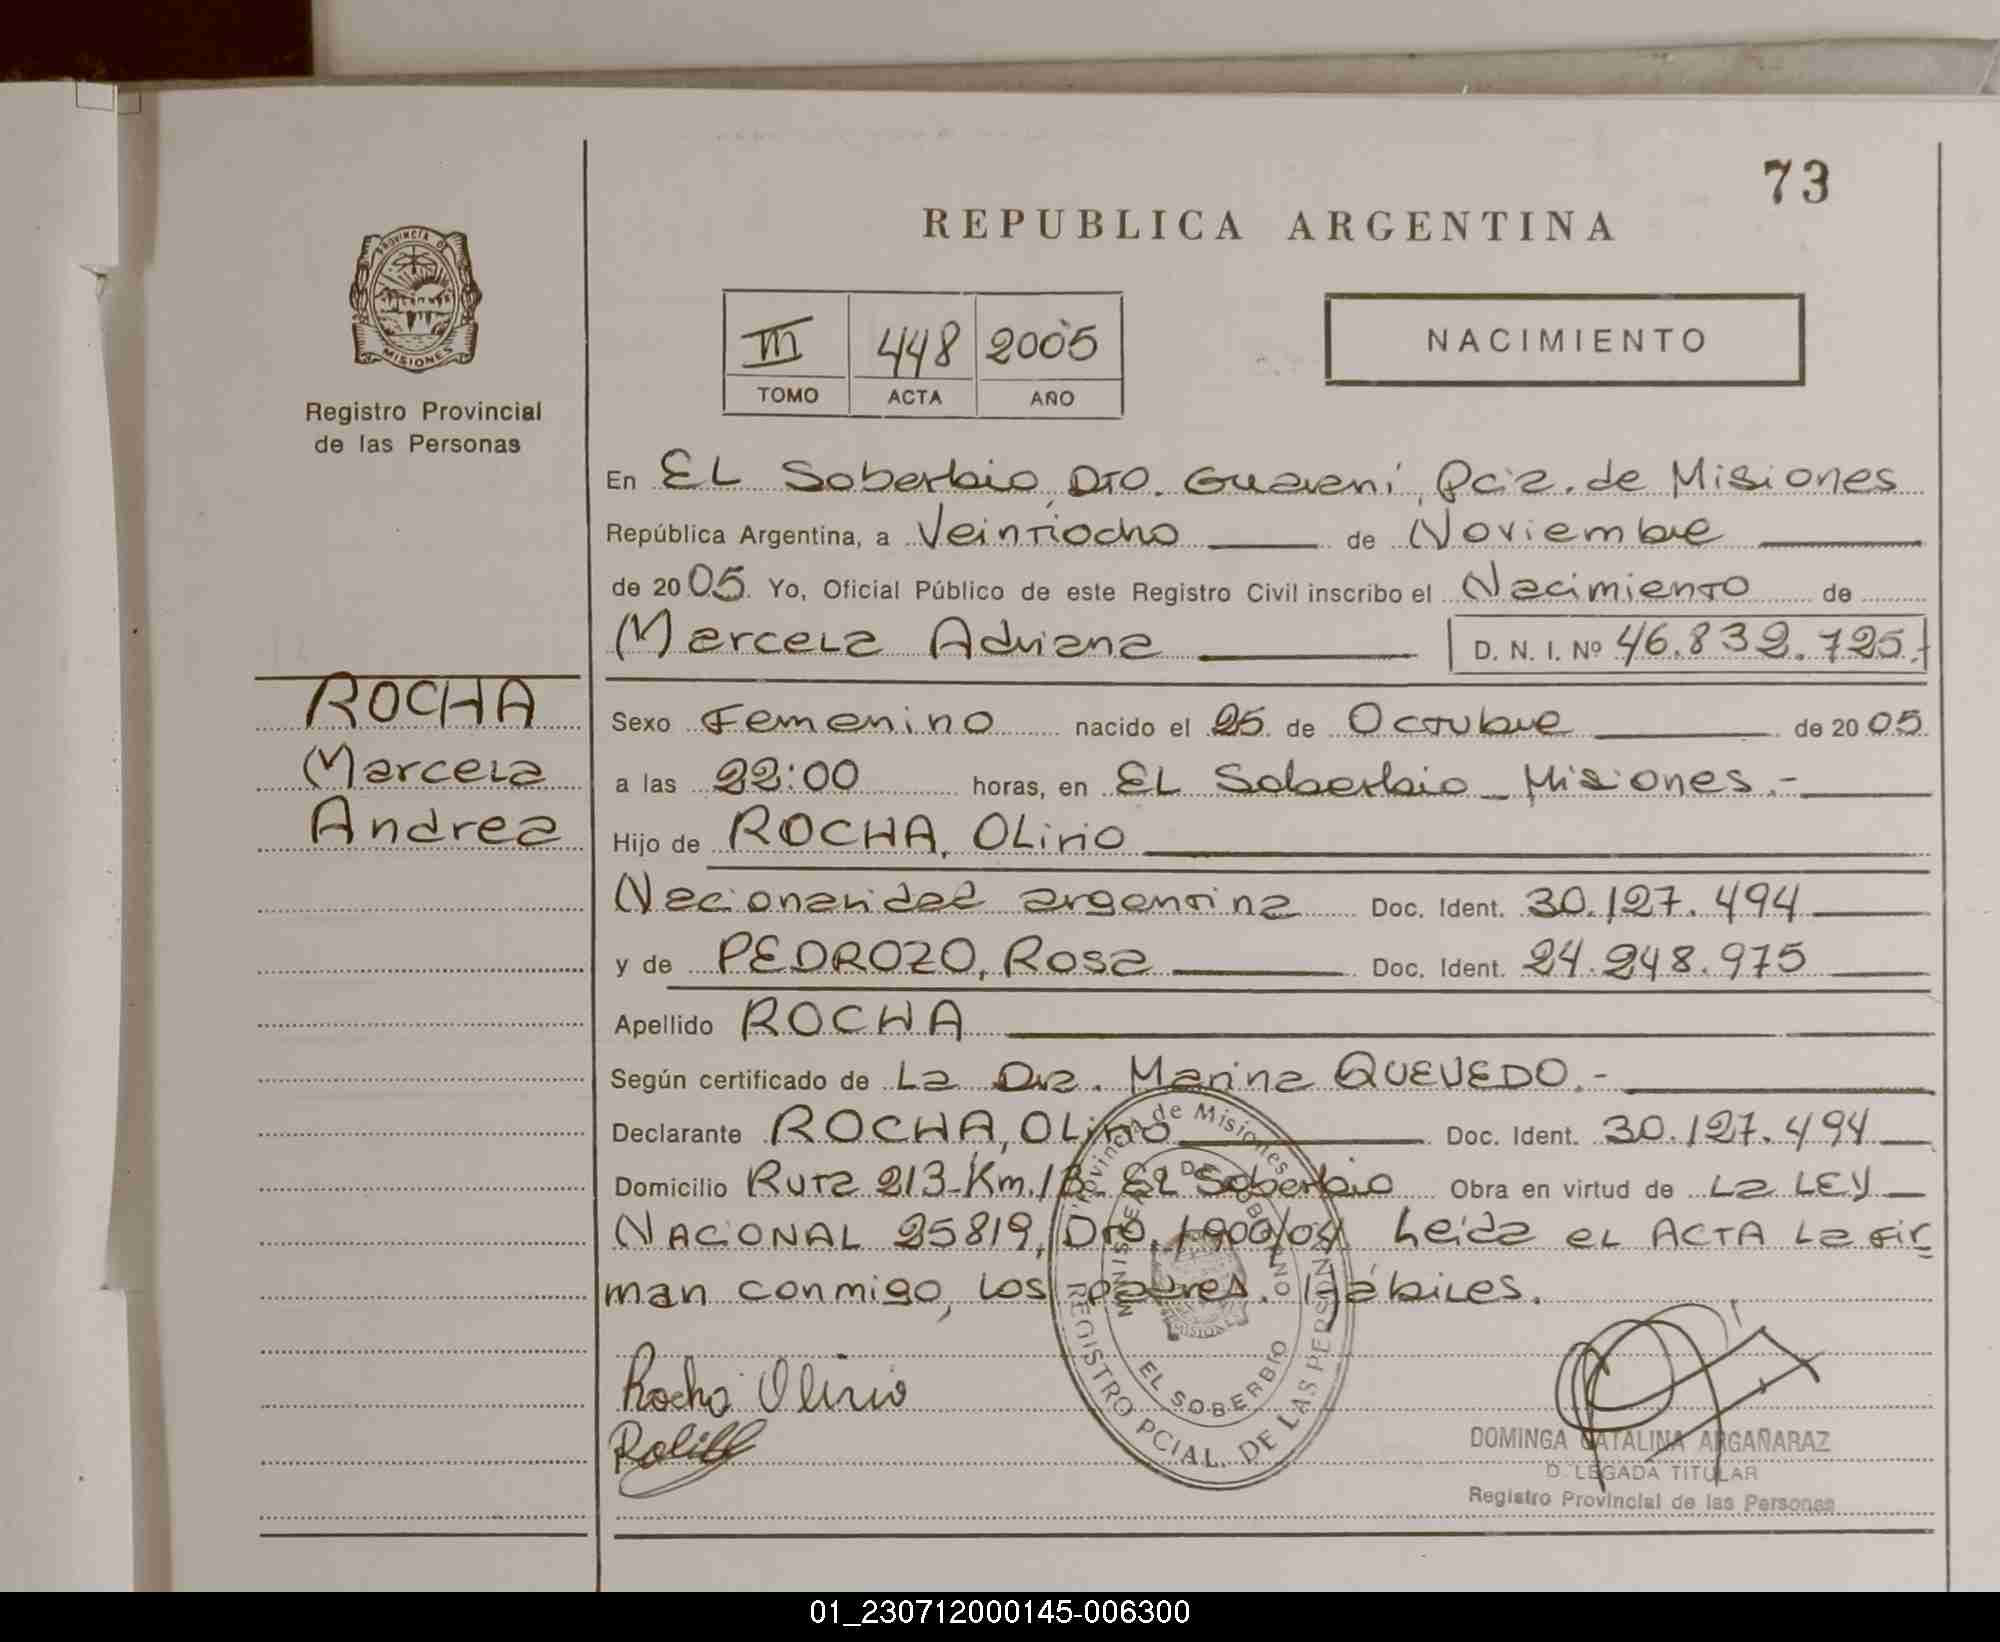 73
REPUBLICA ARGENTINA
PROVINCIA DE
MISIONES
Registro Provincial
de las Personas
III 448 2005
TOMO ACTA AÑO
NACIMIENTO
En EL Soberbio, Dto. Guaraní, Pcia. de Misiones
República Argentina, a Veintiocho de Noviembre
de 2005. Yo, Oficial Público de este Registro Civil inscribo el Nacimiento de
Marcela Adriana D. N. I. Nº 46.832.725.-
ROCHA
Marcela
Andrea
Sexo Femenino nacido el 25 de Octubre de 2005.
a las 22:00 horas, en EL Soberbio - Misiones.-
Hijo de ROCHA, OLirio
Nacionalidad argentina Doc. Ident. 30.127.494
y de PEDROZO, Rosa Doc. Ident. 24.248.975
Apellido ROCHA
Según certificado de La Dra. Marina QUEVEDO.-
Declarante ROCHA, OLirio Doc. Ident. 30.127.494
Domicilio Ruta 213-Km.13- EL Soberbio Obra en virtud de La LEY
NACIONAL 25819, Dto. 1900/04. Leida eL ACTA La fir
man conmigo, Los padres. Hábiles.
Provincia de Misiones
MINISTERIO DE GOBIERNO
MISIONES
EL SOBERBIO
REGISTRO PCIAL. DE LAS PERSONAS
Rocha Olirio
DOMINGA CATALINA ARGAÑARAZ
DELEGADA TITULAR
Registro Provincial de las Personas
01_230712000145-006300